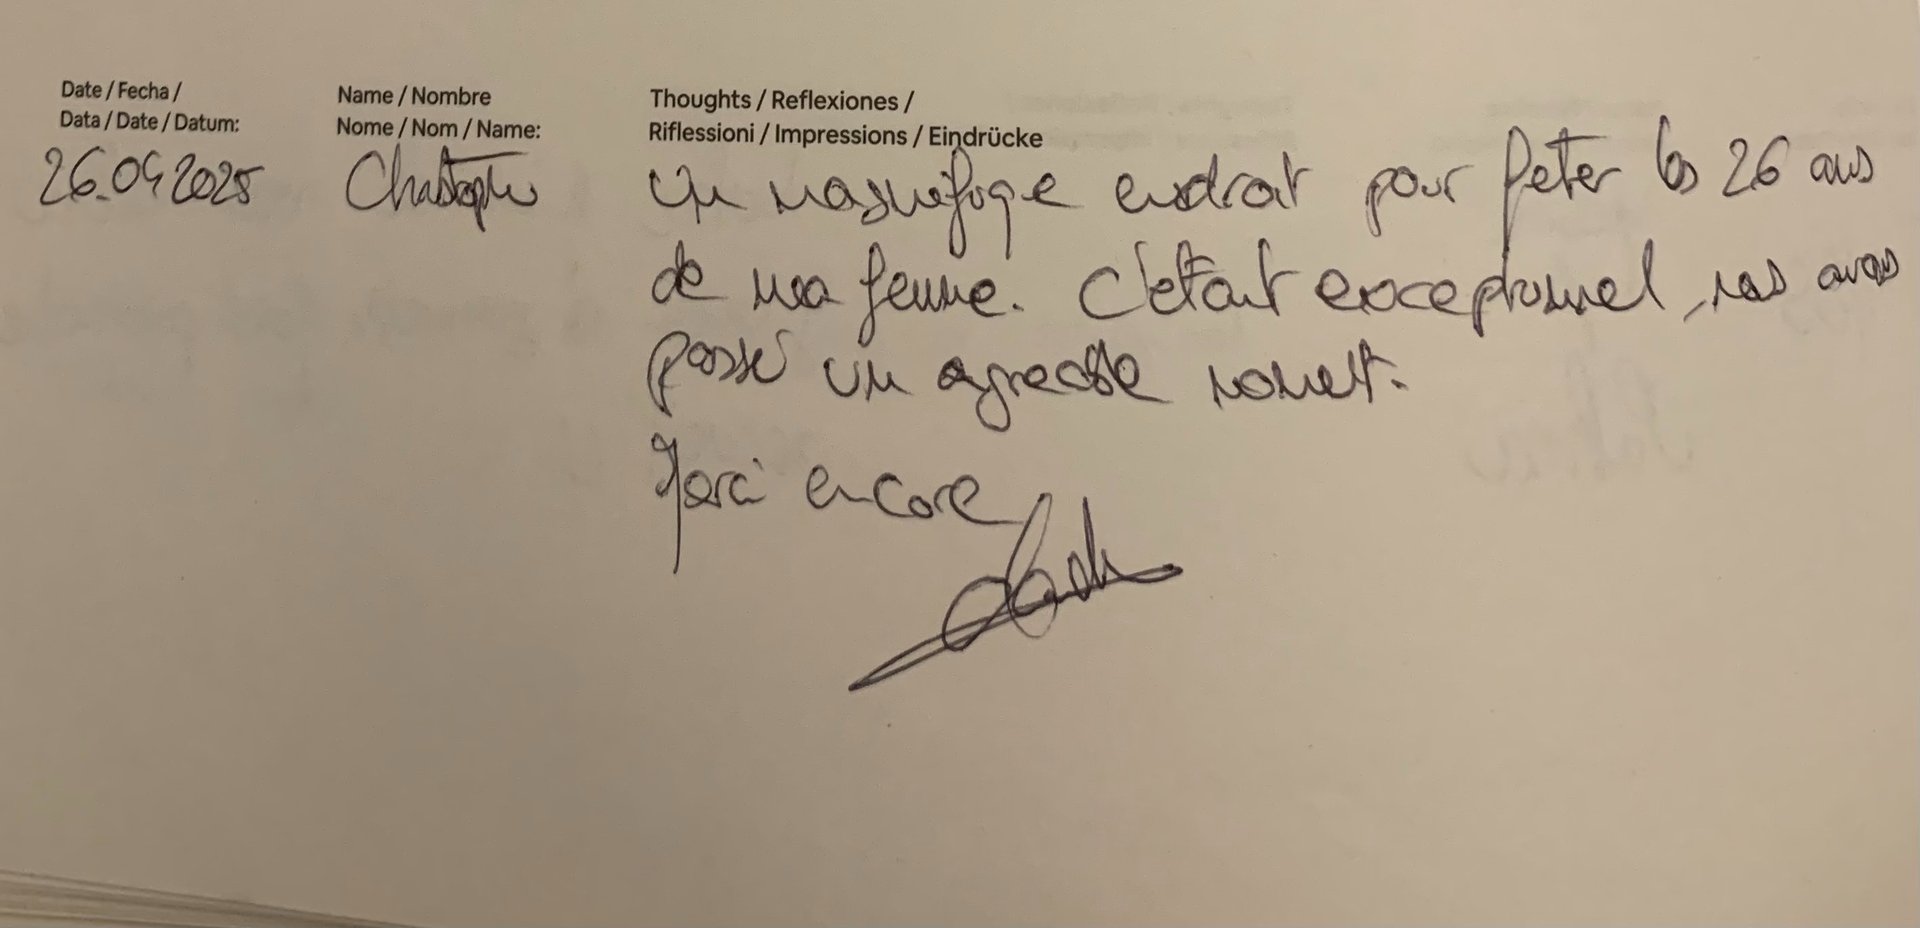 Date / Fecha /
Data / Date / Datum:
Name / Nombre
Nome / Nom / Name:
Thoughts / Reflexiones /
Riflessioni / Impressions / Eindrücke
26.04.2025
Christophe
Un magnifique endroit pour feter les 26 ans
de ma femme. C'était exceptionnel, nous avons
passé un agreable moment.
Merci encore